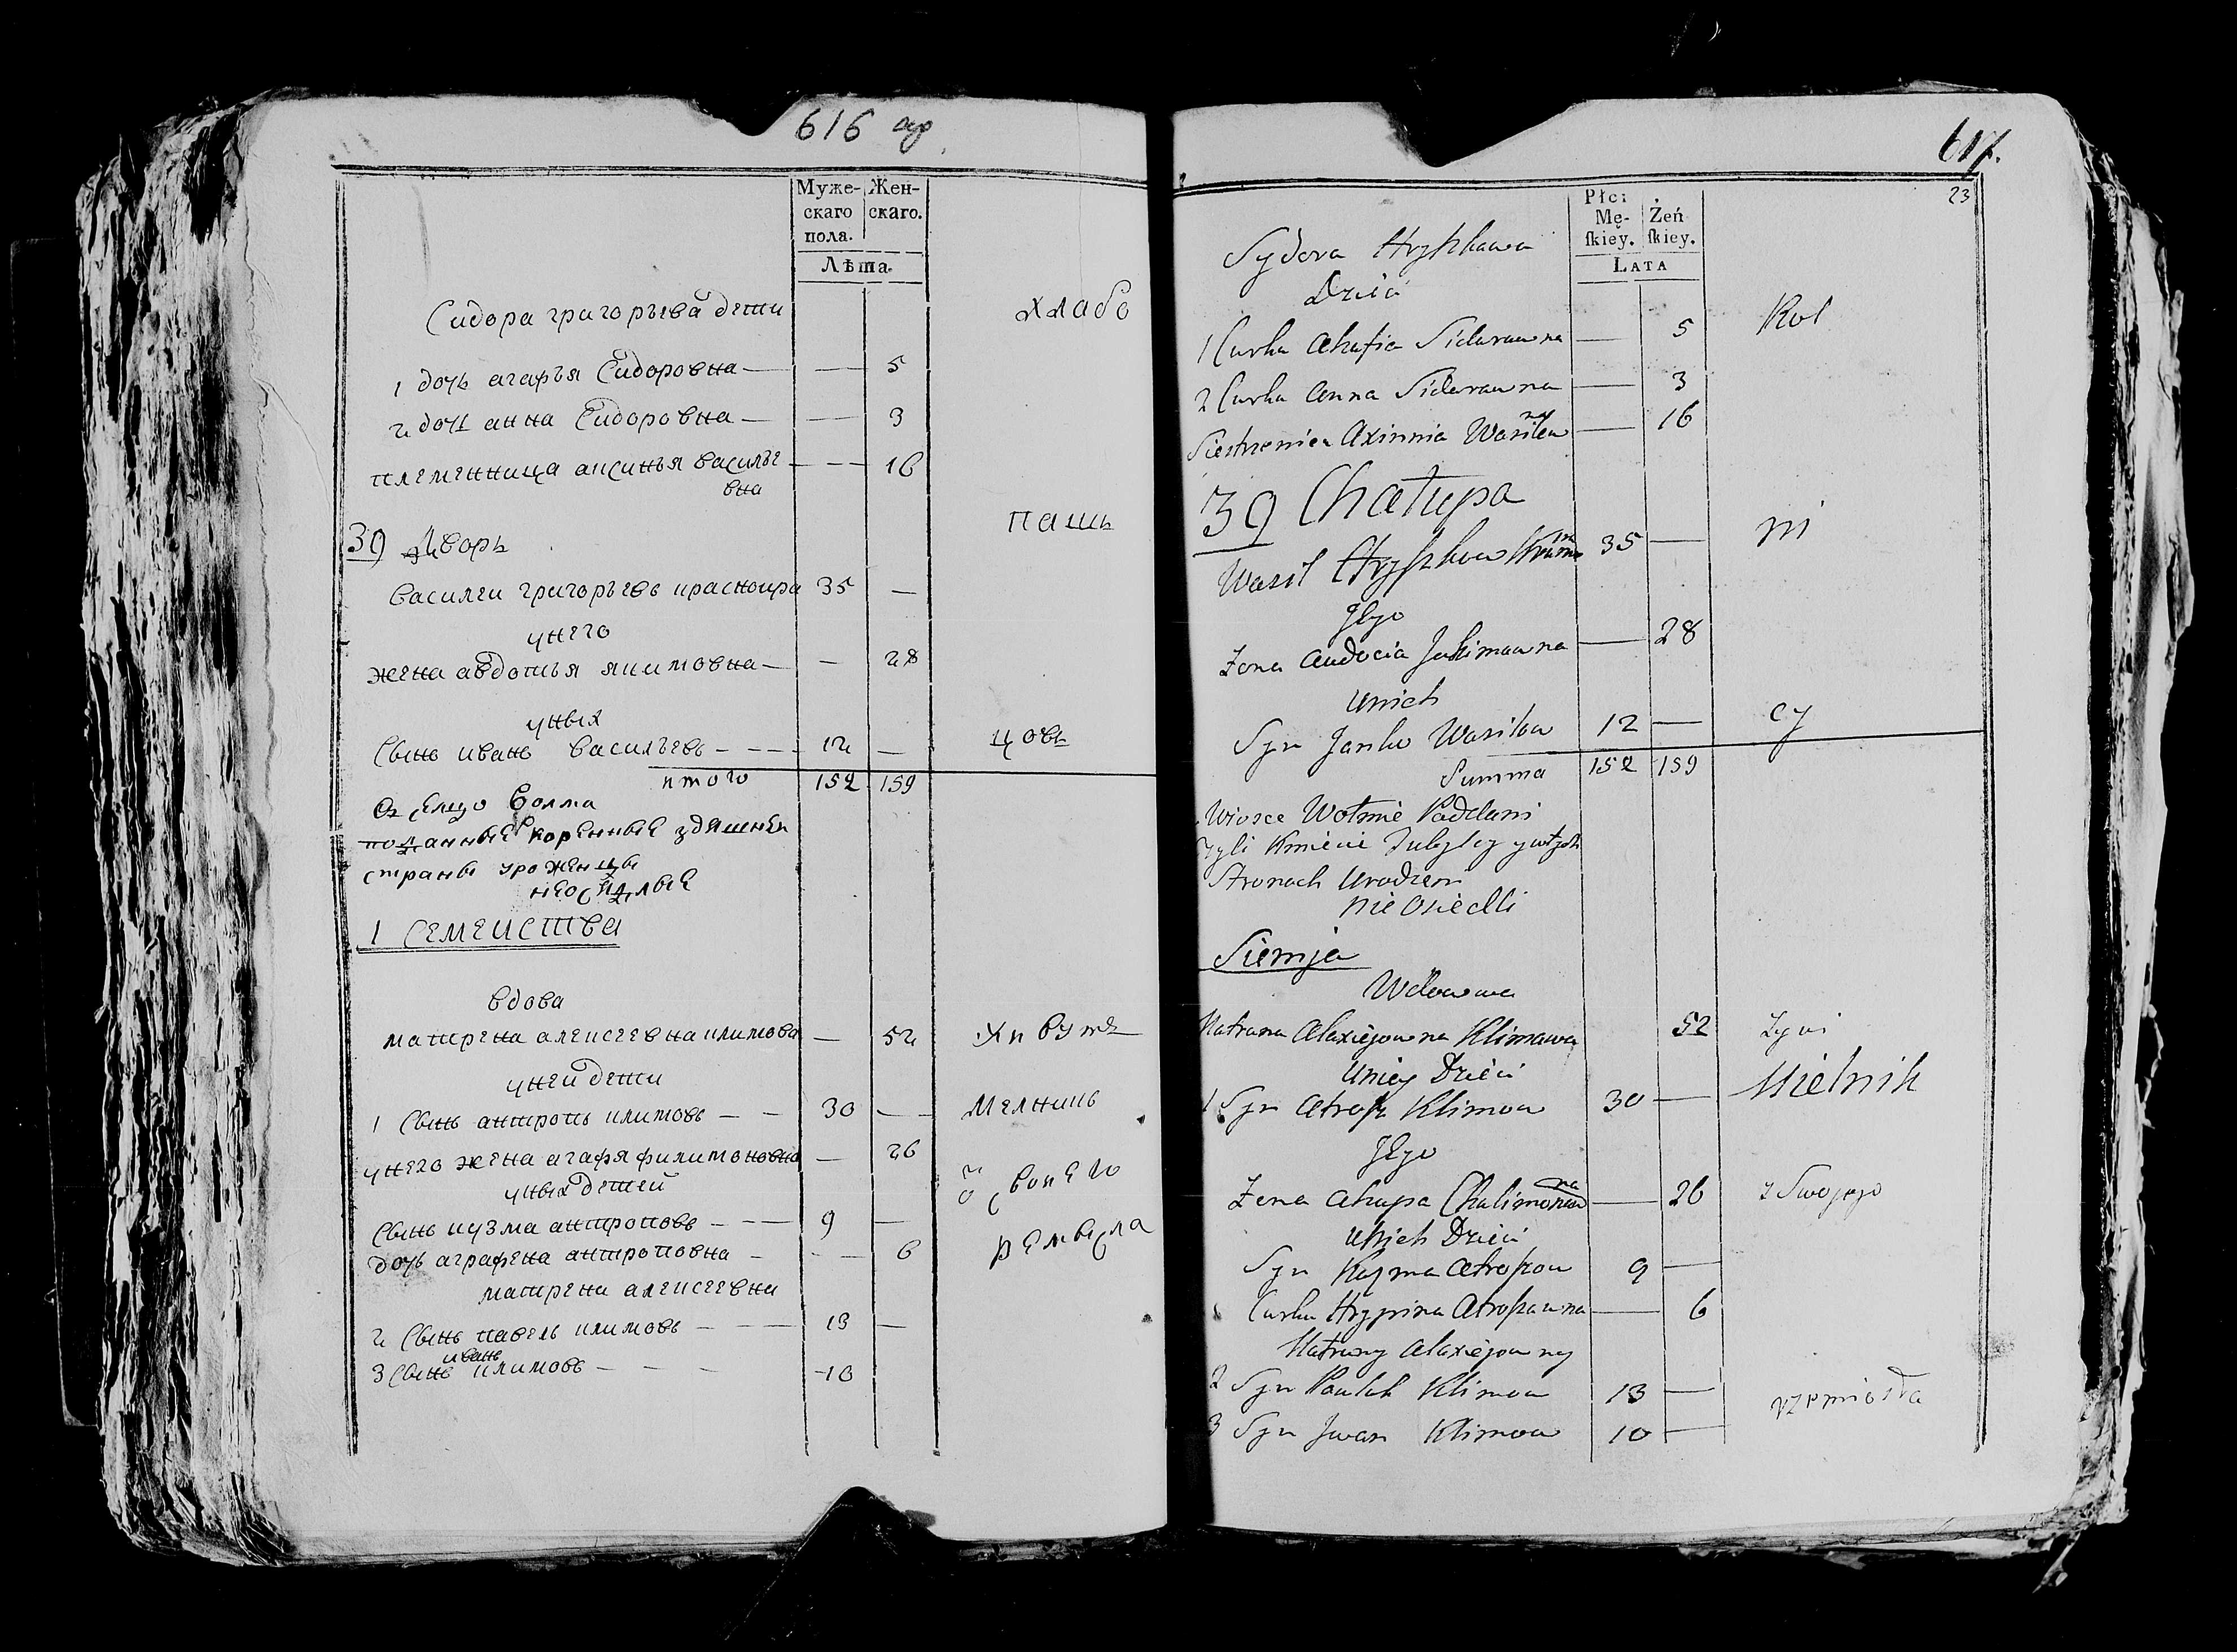 616 об
Муже- Жен-
скаго скаго.
пола.
Лѣта.
Сидора григорьева дети
хлабо
1 дочь агафья Сидоровна — — 5
2 дочь анна Сидоровна — — 3
племенница аксинья василье — — 16
вна
пашь
39 Дворъ
василеи григорьевъ краскира 35 —
унего
жена авдотья якимовна — — 28
уных
сынъ иванъ васильевъ — 12 —
цовъ
итого 152 159
селцо волма
подданные коренные здешней
страны уроженцы
неоседлые
1 семеиства
вдова
матрена алексеевна климова — 52 живутъ
унеи дети
1 сынъ антропъ климовъ — 30 — мелникъ
унего жена агафя филимоновна — 26
уных детей
своего
сынъ кузма антроповъ — 9 —
дочь аграфена антроповна — — 6
ремысла
матрены алексеевны
2 сынъ павелъ климовъ — 13 —
иванъ
3 сынъ климовъ — 10
617.
23
Płci
Mę- Żeń
ſkiey. ſkiey.
LATA
Sydora Hryszkawa
Dzieci
Rol
1 Curka Ahafia Sidarawna — 5
2 Curka Anna Sidarawna — 3
na
Siestrenica Axinnia Wasilew — 16
39 Chałupa
ni
Wasil Hryszkow 35 —
Jego
Zona Audocia Jakimawna — 28
Unich
cy
Syn Janko Wasilow 12 —
Summa 152 159
Wiosce Wołmie Paddani
czyli Kmiecie Tubylcy ywtych
Stronach Urodzeni
nie Osiedli
Siemja
Wdowa
Matrana Alaxiejowna Klimawa 52 Zywi
Uniey Dzieci
Mielnik
1 Syn Atrop Klimow 30 —
Jego
na
Zena Ahapa Chalimonaw — 26 z Swojego
Unich Dzieci
Syn Kuzma Atropow 9 —
Curka Hrypina Atropawna — 6
Matruny Alaxiejowny
2 Syn Pauluk Klimow 13 —
rzemiosła
3 Syn Jwan Klimow 10 —